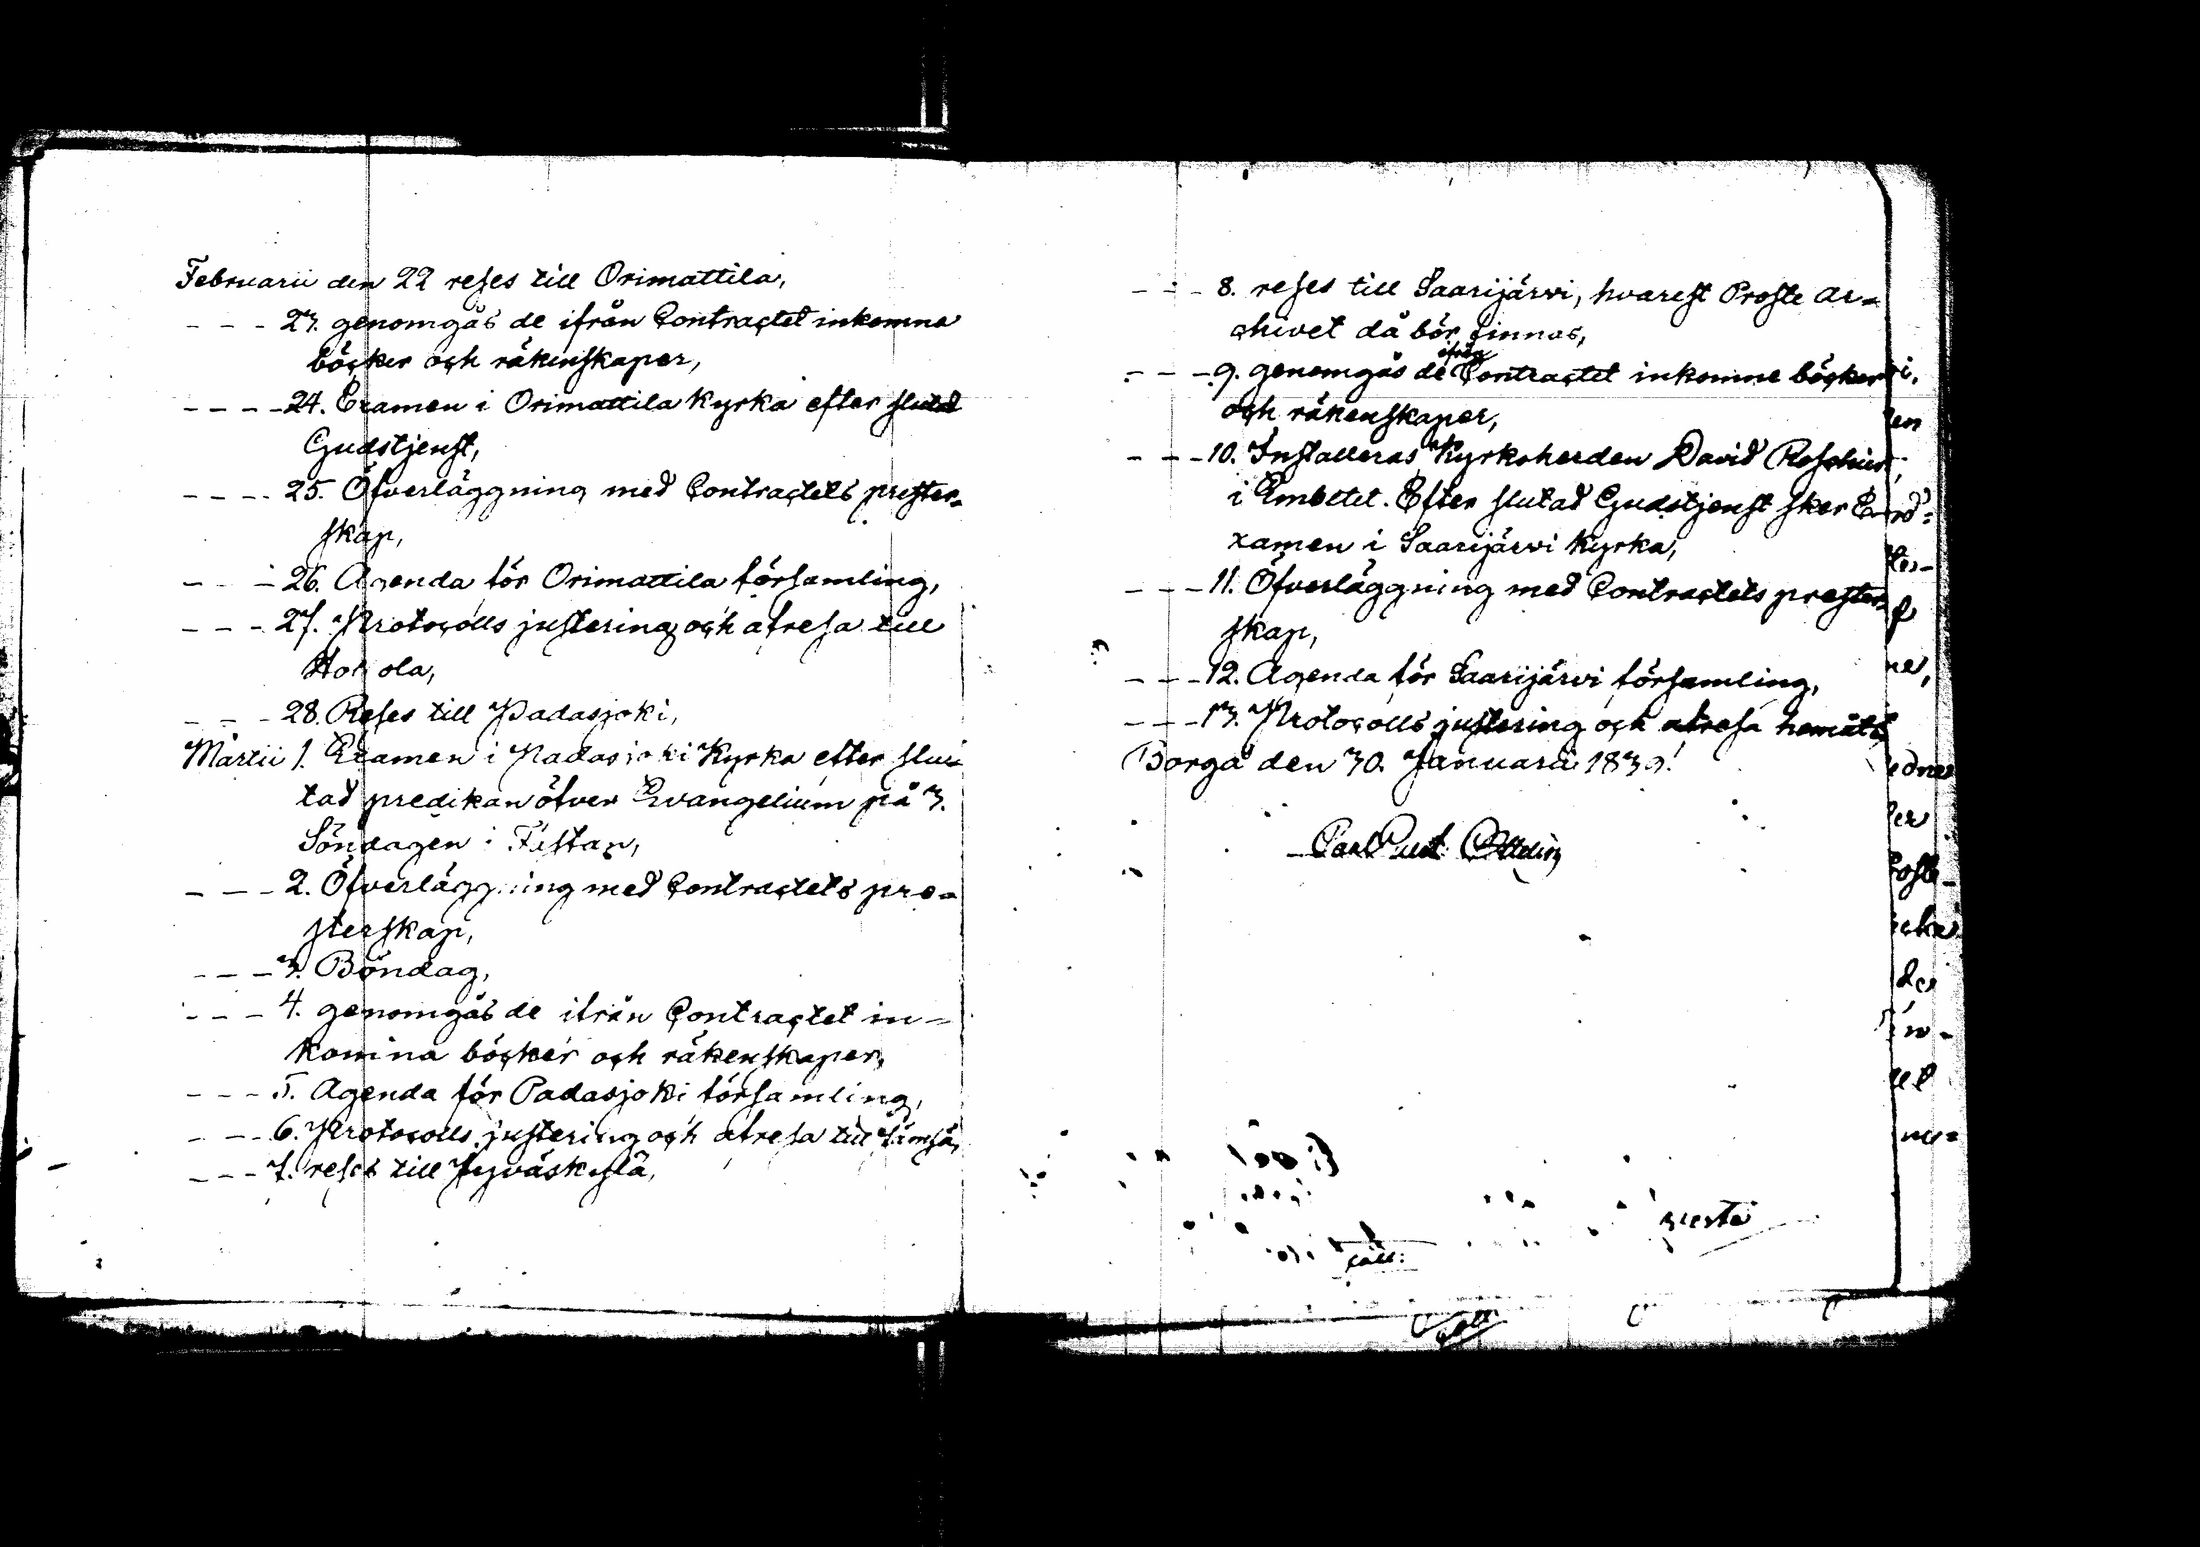 Februarii den 22 reses till Orimattila,
- - - 23. genomgås de ifrån Contractet inkomna
böcker och räkenskaper,
- - - - 24. Examen i Orimattila Kyrka efter slutad
Gudstjenst,
- - - - 25. Öfverläggning med Contractets prester-
skap,
- - - 26. Agenda för Orimattila församling,
- - - 27. Protocolls justering och afresa till
Hollola,
- - - 28. Reses till Padasjoki,
Martii 1. Examen i Padasjoki Kyrka efter slu-
tad predikan öfver Evangelium på 3.
Söndagen i Fastan,
- - - 2. Öfverläggning med Contractets pre-
sterskap,
- - - 3. Böndag,
- - - 4. genomgås de ifrån Contractet in-
komna böcker och räkenskaper,
- - - 5. Agenda för Padasjoki församling,
- - - 6. Protocolls justering och afresa till Jämsä,
- - - 7. reses till Jyväskylä,
- - - 8. reses till Saarijärvi, hvarest Proste Ar-
chivet då bör finnas,
- - - 9. genomgås de ifrån Contractet inkomne böcker
och räkenskaper,
- - - 10. Installeras Kyrkoherden David Roschier
i Embetet. Efter slutad Gudstjenst sker E-
xamen i Saarijärvi Kyrka,
- - - 11. Öfverläggning med Contractets prester-
skap,
- - - 12. Agenda för Saarijärvi församling,
- - - 13. Protocolls justering och afresa hemåt.
Borgå den 30. Januarii 1839.
Carl Gust. Ottelin